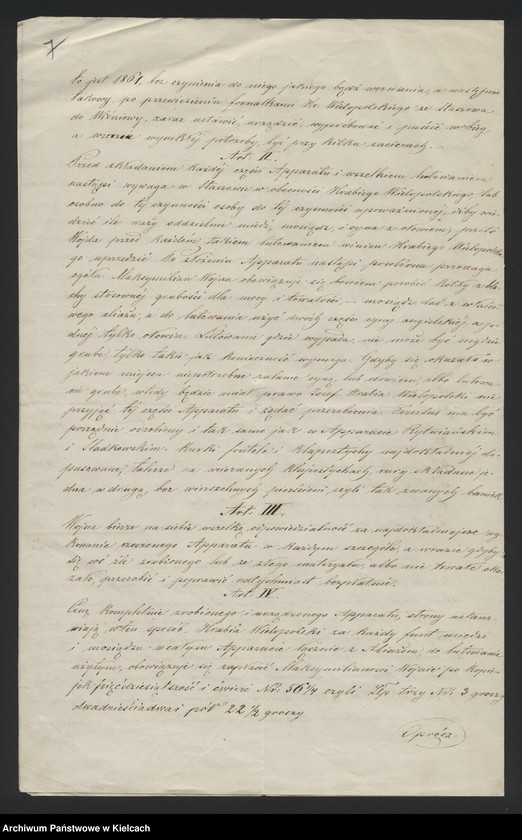 7
to jest 1861, bez czynienia do niego jakiego bądź wezwania, a następnie
takowy po przewiezieniu fornalkami Hr. Wielopolskiego ze Staszowa
do zaraz ustawić, urządzić, wypróbować i puścić w bieg
a wrazie wynikłej potrzeby, być przy kilku zacierach.
Art. II.
Przed składaniem każdej części Apparatu i wszelkiem lutowaniem
nastąpi wywaga w Staszowie w obecności Hrabiego Wielopolskiego, lub
osobno do tej czynności osoby do tej czynności upoważnionej, ażby wie-
dzieć ile waży oddzielnie miedź, mosiądz, i cyna z ołowiem, przeto
Wojda przed każdem takiem lutowaniem winien Hrabiego Wielopolskie-
go uprzedzić. Po złożeniu Apparatu nastąpi powtórna przewaga
ogółu. Maksymilian Wojna obowiązuje się bowiem porobić Kotły z bla-
chy stosownej grubości dla mocy i trwałości, — mosiądz dać z właści-
wego aliażu, a do lutowania użyć dwóch części cyny angielskiej a je-
dnej tylko ołowiu. Lutowanie gdzie wypada, nie może być nigdzie
grube, tylko takie jak konieczność wymaga. Gdyby się okazało w
jakiem miejscu niepotrzebne zalanie cyną, lub ołowiem, albo lutowa-
nie grube, wtedy będzie miał prawo Józef Hrabia Wielopolski nie
przyjąć tej części Apparatu i żądać przerobienia. ma być
porządnie obrobiony i tak samo jak w Apparacie Rytwiańskim
i Sladkowskim. Kurki, i klapsztychy najdokładniej do-
pasowane, na wierzchnych klapsztychach, rury składane je-
dna w drugą, bez wierzchnich pierścieni, czyli tak zwanych
Art. III.
Wojna bierze na siebie wszelką odpowiedzialność za najdokładniejsze wy-
konanie rzeczonego Apparatu w każdym szczególe, a wrazie gdyby
się coś źle zrobionego lub ze złego materyału, albo nie trwałe oka-
zało, przerobić i poprawić natychmiast bezpłatnie.
Art. IV.
Cenę kompletnie zrobionego i urządzonego Apparatu, strony ustana-
wiają w ten sposób. Hrabia Wielopolski za każdy funt miedzi
i mosiądzu w całym Apparacie łącznie z Aliażem, do lutowania
użytym, obowiązuje się zapłacić Maksymilianowi Wojnie po kopie-
jek pięćdziesiąt sześć i ćwierć No: 56 1/4 czyli Złp. trzy No: 3 groszy
dwadzieścia dwa i pół No 22 1/2 groszy
Oprócz.
Archiwum Państwowe w Kielcach